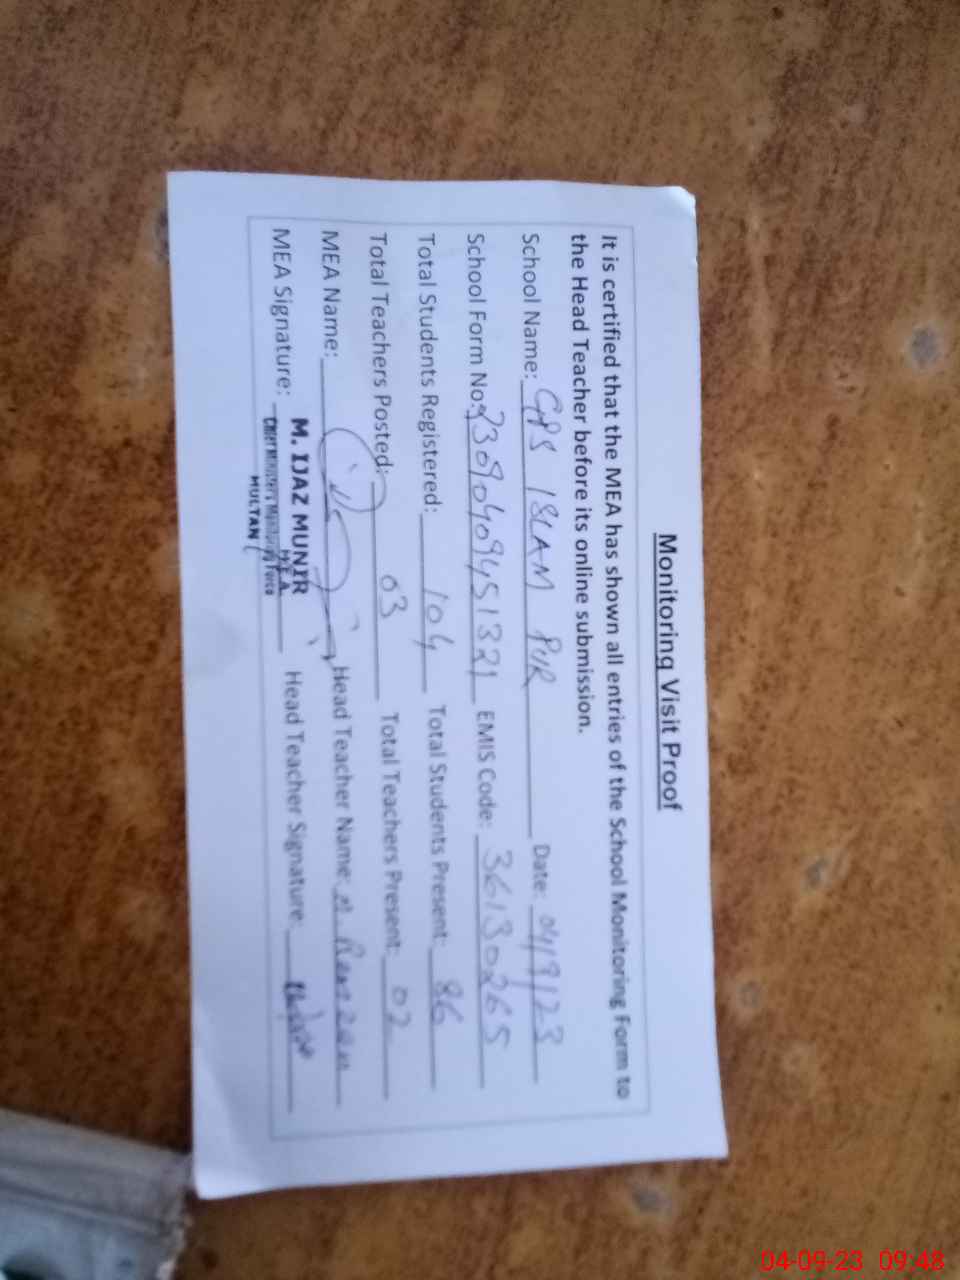 Monitoring Visit Proof
It is certified that the MEA has shown all entries of the School Monitoring Form to
the Head Teacher before its online submission.
School Name: GPS ISLAM PUR Date: 04/9/23
School Form No: 23090409451321 EMIS Code: 36130265
Total Students Registered: 104 Total Students Present: 86
Total Teachers Posted: 03 Total Teachers Present: 02
MEA Name: Head Teacher Name: M. Ramzan
MEA Signature: Head Teacher Signature:
M. IJAZ MUNIR
MEA
Chief Minister's Monitoring Force
MULTAN
04-09-23 09:48